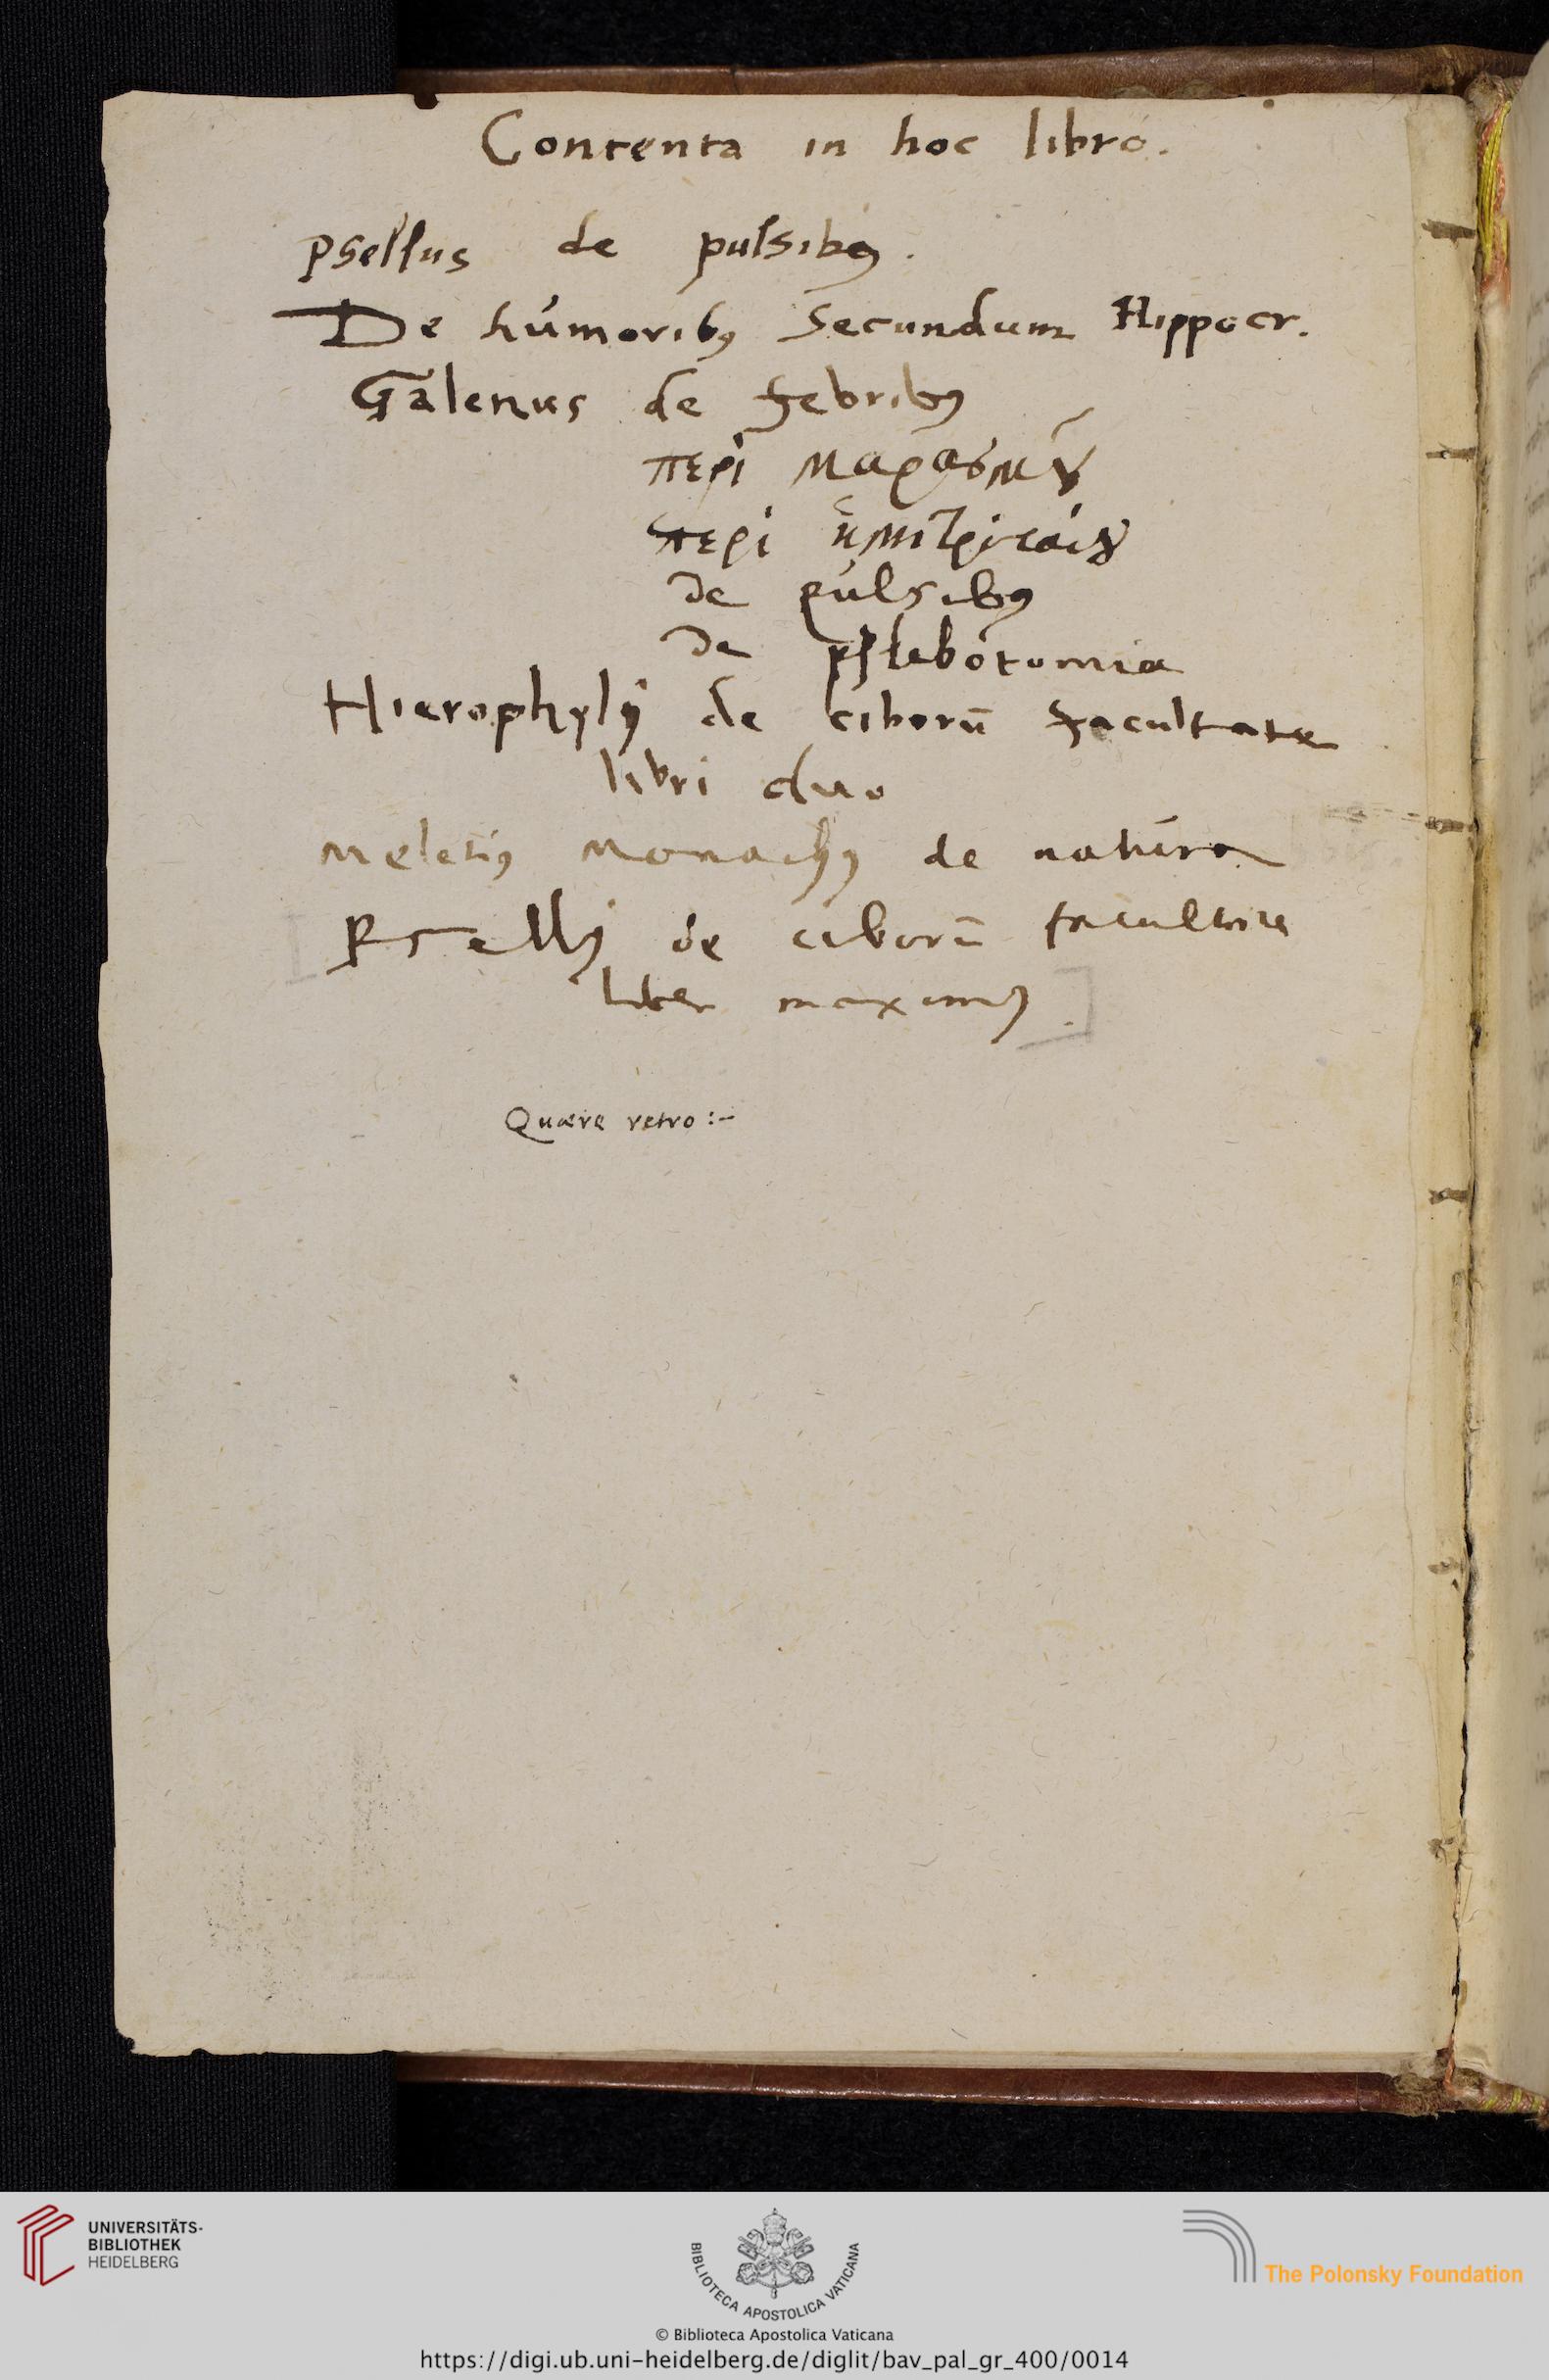 Contenta in hoc libro.
Psellus de pulsibꝰ.
De humoribꝰ secundum Hippocr.
Galenus de febribꝰ
περὶ μαρασμοῦ
περὶ ἡμιτριταίου
de pulsibꝰ
de phlebotomia
Hierophylij de ciborū facultate
libri duo
Meletiꝰ Monachꝰ de natura
Pselli de ciborū facultate
liber maximꝰ.
Quære retro:-
UNIVERSITÄTS-
BIBLIOTHEK
HEIDELBERG
BIBLIOTECA APOSTOLICA VATICANA
The Polonsky Foundation
© Biblioteca Apostolica Vaticana
https://digi.ub.uni-heidelberg.de/diglit/bav_pal_gr_400/0014